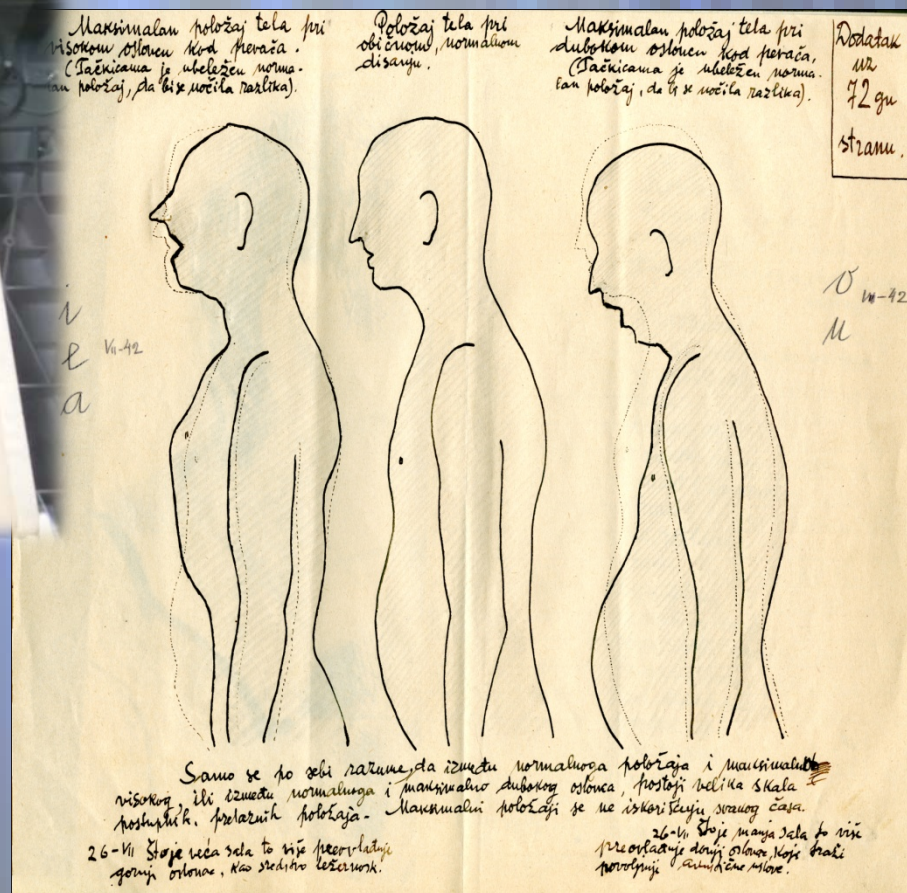 Maksimalan položaj tela pri
visokom osloncu kod pevača.
(Tačkicama je ubeležen norma-
lan položaj, da bi se uočila razlika).
Položaj tela pri
običnom, normalnom
disanju.
Maksimalan položaj tela pri
dubokom osloncu kod pevača,
(Tačkicama je ubeležen norma-
lan položaj, da bi se uočila razlika).
Dodatak
uz
72 gu
stranu.
i
e VII-42
a
o VII-42
u
Samo se po sebi razume, da između normalnoga položaja i maksimalno
visokog, ili između normalnoga i maksimalno dubokog oslonca, postoji velika skala
postupnih, prelaznih položaja - Maksimalni položaji se ne iskorišćuju svakog časa.
26-VII Što je veća sala to više preovlađuje
gornji oslonac, kao sredstvo
26-VII Što je manja sala to više
preovlađuje donji oslonac, koje traži
povoljnije akustične uslove.